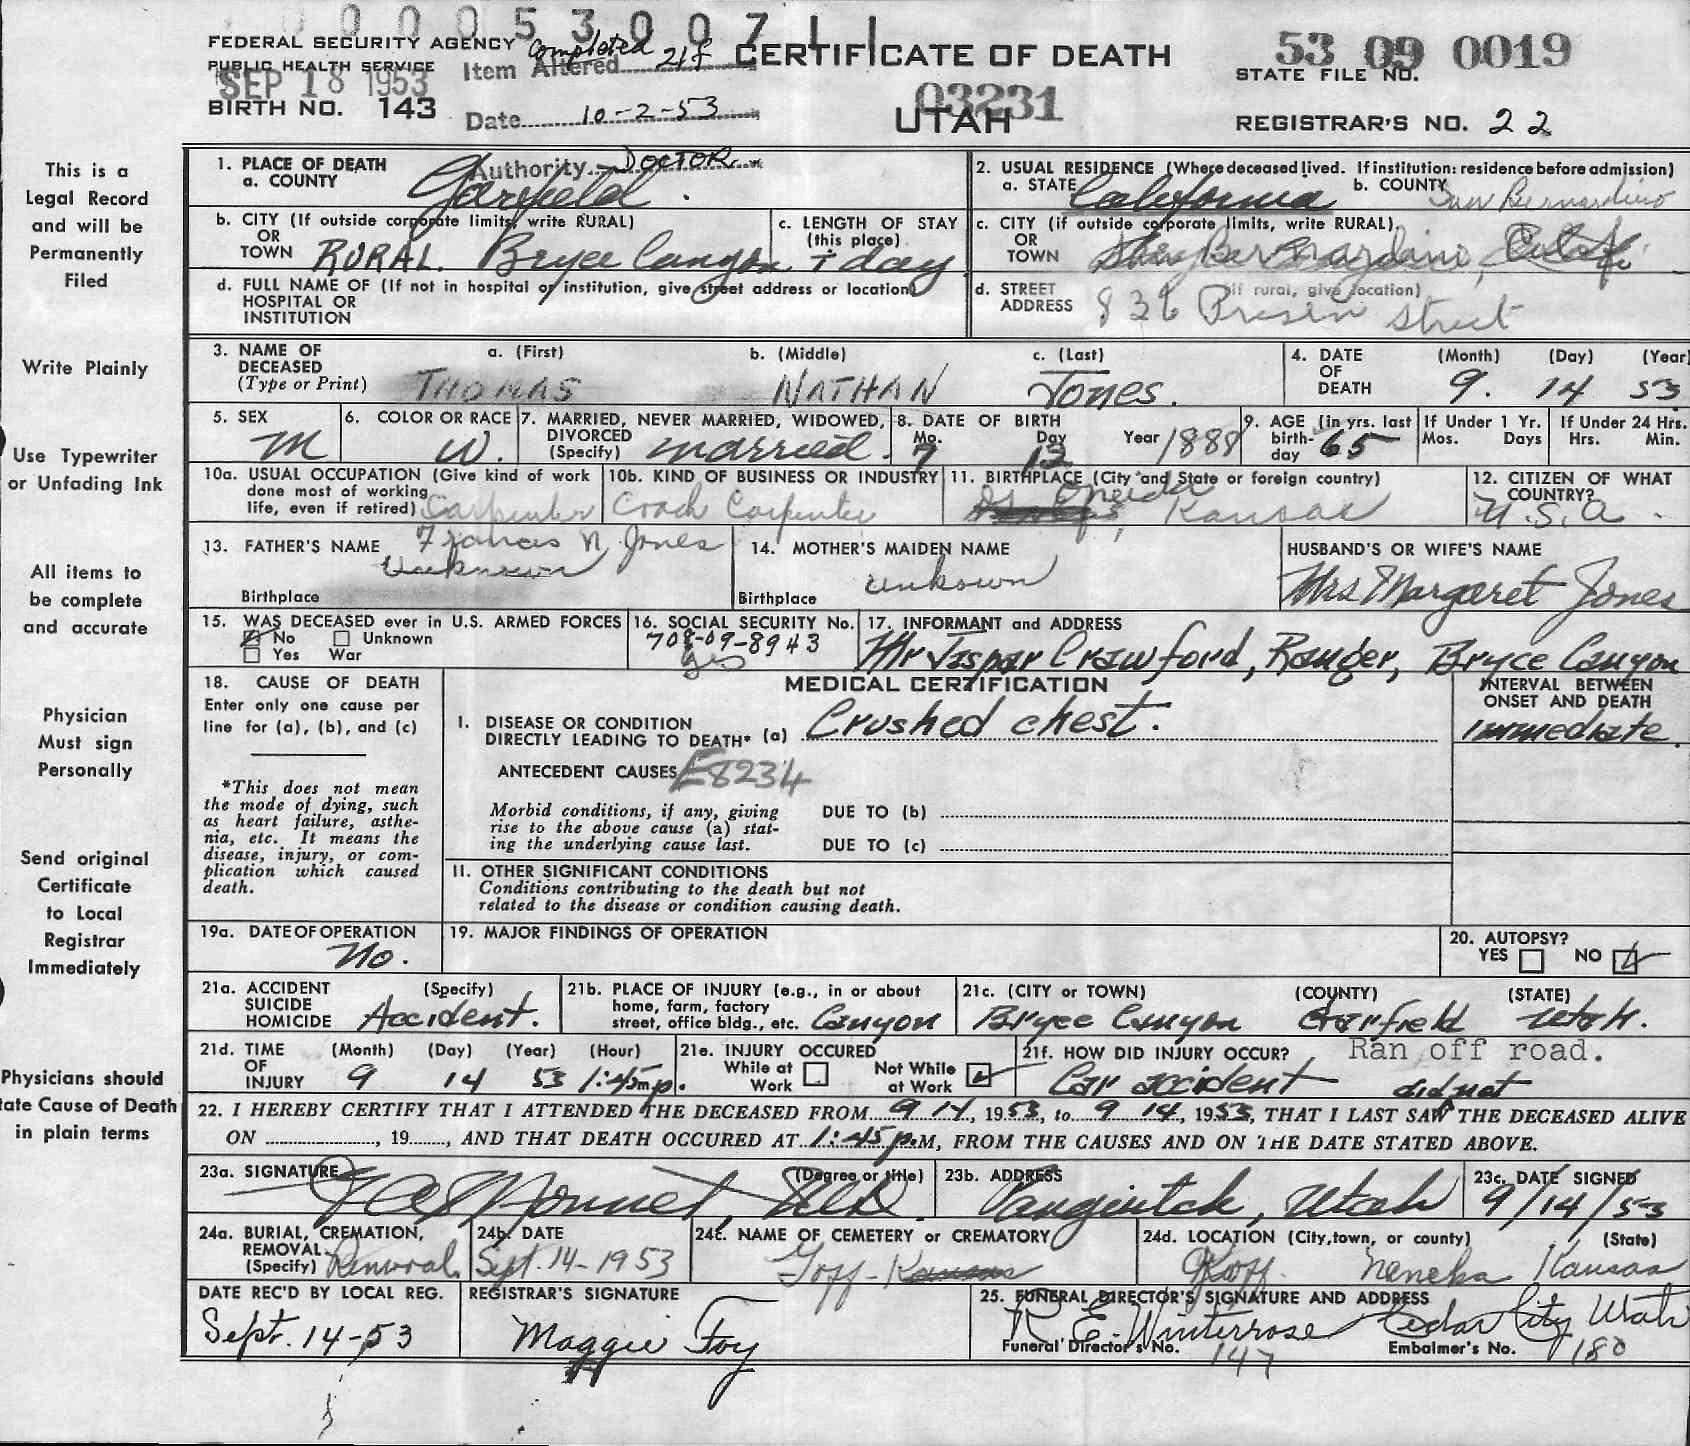 0 0 0 0 5 3 0 0 7 1 1
FEDERAL SECURITY AGENCY
PUBLIC HEALTH SERVICE
SEP 18 1953
BIRTH NO. 143
Completed
Item Altered 21f
Date 10-2-53
Authority - DOCTOR
CERTIFICATE OF DEATH
03231
UTAH
53 09 0019
STATE FILE NO.
REGISTRAR'S NO. 22
This is a
Legal Record
and will be
Permanently
Filed
Write Plainly
Use Typewriter
or Unfading Ink
All items to
be complete
and accurate
Physician
Must sign
Personally
Send original
Certificate
to Local
Registrar
Immediately
Physicians should
tate Cause of Death
in plain terms
1. PLACE OF DEATH
a. COUNTY Garfield.
2. USUAL RESIDENCE (Where deceased lived. If institution: residence before admission)
a. STATE California b. COUNTY San Bernardino
b. CITY (If outside corporate limits, write RURAL)
OR
TOWN RURAL. Bryce Canyon
c. LENGTH OF STAY
(this place)
day
c. CITY (if outside corporate limits, write RURAL)
OR
TOWN San Bernardino, Calif.
d. FULL NAME OF (If not in hospital or institution, give street address or location)
HOSPITAL OR
INSTITUTION
d. STREET (If rural, give location)
ADDRESS 836 Street
3. NAME OF
DECEASED
(Type or Print)
a. (First) b. (Middle) c. (Last)
THOMAS NATHAN Jones.
4. DATE
OF
DEATH
(Month) (Day) (Year)
9. 14 53
5. SEX
M
6. COLOR OR RACE
W.
7. MARRIED, NEVER MARRIED, WIDOWED,
DIVORCED
(Specify) married.
8. DATE OF BIRTH
Mo. Day Year 1888
7 13
9. AGE (in yrs. last
birth-
day 65
If Under 1 Yr.
Mos. Days
If Under 24 Hrs.
Hrs. Min.
10a. USUAL OCCUPATION (Give kind of work
done most of working
life, even if retired) Carpenter
10b. KIND OF BUSINESS OR INDUSTRY
Coach Carpenter
11. BIRTHPLACE (City and State or foreign country)
Oneida, Kansas
12. CITIZEN OF WHAT
COUNTRY?
U.S.A.
13. FATHER'S NAME Francis N Jones
Unknown
Birthplace
14. MOTHER'S MAIDEN NAME
unkown
Birthplace
HUSBAND'S OR WIFE'S NAME
Mrs Margaret Jones
15. WAS DECEASED ever in U.S. ARMED FORCES
No Unknown
Yes War
16. SOCIAL SECURITY No.
708-09-8943
yes
17. INFORMANT and ADDRESS
Mr Jasper Crawford, Ranger, Bryce Canyon
18. CAUSE OF DEATH
Enter only one cause per
line for (a), (b), and (c)
*This does not mean
the mode of dying, such
as heart failure, asthe-
nia, etc. It means the
disease, injury, or com-
plication which caused
death.
MEDICAL CERTIFICATION
I. DISEASE OR CONDITION
DIRECTLY LEADING TO DEATH* (a) Crushed chest.
INTERVAL BETWEEN
ONSET AND DEATH
immediate.
ANTECEDENT CAUSES E8234
Morbid conditions, if any, giving
rise to the above cause (a) stat-
ing the underlying cause last.
DUE TO (b)
DUE TO (c)
II. OTHER SIGNIFICANT CONDITIONS
Conditions contributing to the death but not
related to the disease or condition causing death.
19a. DATE OF OPERATION
No.
19. MAJOR FINDINGS OF OPERATION
20. AUTOPSY?
YES NO
21a. ACCIDENT (Specify)
SUICIDE
HOMICIDE Accident.
21b. PLACE OF INJURY (e.g., in or about
home, farm, factory
street, office bldg., etc. Canyon
21c. (CITY or TOWN) (COUNTY) (STATE)
Bryce Canyon Garfield Utah.
21d. TIME
OF
INJURY
(Month) (Day) (Year) (Hour)
9 14 53 1:45 mp.
21e. INJURY OCCURED
While at
Work
Not While
at Work
21f. HOW DID INJURY OCCUR? Ran off road.
Car accident
did not
22. I HEREBY CERTIFY THAT I ATTENDED THE DECEASED FROM 9 14, 1953, to 9 14, 1953, THAT I LAST SAW THE DECEASED ALIVE
ON , 19 , AND THAT DEATH OCCURED AT 1:45 p.M, FROM THE CAUSES AND ON THE DATE STATED ABOVE.
23a. SIGNATURE (Degree or title)
23b. ADDRESS
Panguitch, Utah
23c. DATE SIGNED
9/14/53
24a. BURIAL, CREMATION,
REMOVAL
(Specify) Removal
24b. DATE
Sept. 14-1953
24c. NAME OF CEMETERY or CREMATORY
Goff - Kansas
24d. LOCATION (City, town, or county) (State)
Goff. Nemeha Kansas
DATE REC'D BY LOCAL REG.
Sept. 14-53
REGISTRAR'S SIGNATURE
Maggie Foy
25. FUNERAL DIRECTOR'S SIGNATURE AND ADDRESS
R. E. Winterrose Cedar City Utah
Funeral Director's No. 147
Embalmer's No. 180